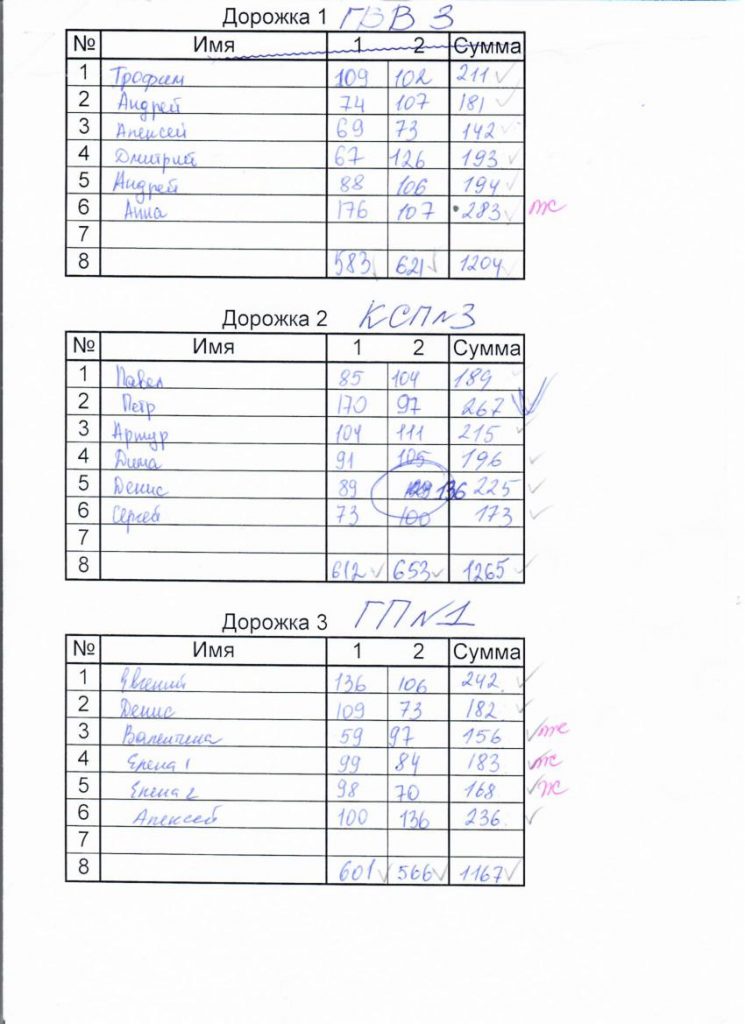 Дорожка 1 ГВВ 3
№ Имя 1 2 Сумма
1 Трофим 109 102 211
2 Андрей 74 107 181
3 Алексей 69 73 142
4 Дмитрий 67 126 193
5 Андрей 88 106 194
6 Анна 176 107 283 ж
7
8 583 621 1204
Дорожка 2 КСП№3
№ Имя 1 2 Сумма
1 Павел 85 104 189
2 Петр 170 97 267
3 Артур 104 111 215
4 Дима 91 105 196
5 Денис 89 136 225
6 Сергей 73 100 173
7
8 612 653 1265
Дорожка 3 ГП№1
№ Имя 1 2 Сумма
1 Евгений 136 106 242
2 Денис 109 73 182
3 Валентина 59 97 156 ж
4 Елена 1 99 84 183 ж
5 Елена 2 98 70 168 ж
6 Алексей 100 136 236
7
8 601 566 1167